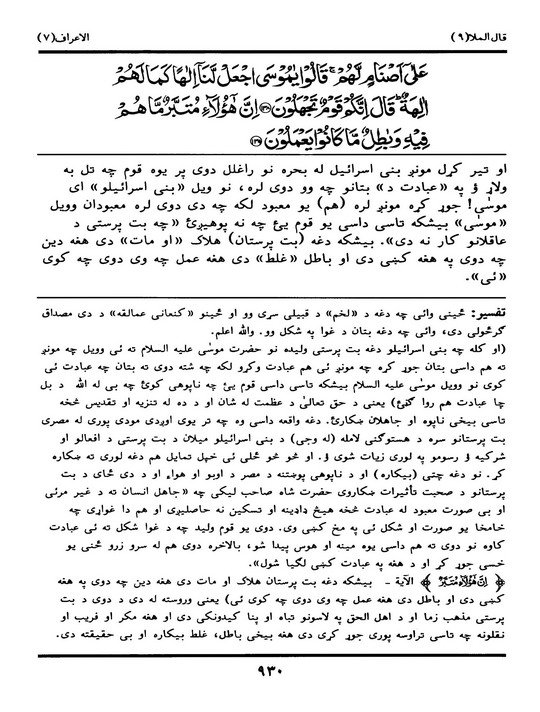 قال الملا(۹) الاعراف(۷)
عَلٰٓى اَصْنَامٍ لَّهُمْ ۚ قَالُوْا یٰمُوْسَى اجْعَلْ لَّنَآ اِلٰهًا كَمَا لَهُمْ
اٰلِهَةٌ ؕ قَالَ اِنَّكُمْ قَوْمٌ تَجْهَلُوْنَ ۝۱۳۸ اِنَّ هٰۤؤُلَآءِ مُتَبَّرٌ مَّا هُمْ
فِیْهِ وَبٰطِلٌ مَّا كَانُوْا یَعْمَلُوْنَ ۝۱۳۹
او تیر کړل مونږ بنی اسرائیل له بحره نو راغلل دوی پر یوه قوم چه تل به
ولاړ ؤ په «عبادت د» بتانو چه وو دوی لره، نو ویل «بنی اسرائیلو» ای
موسٰی! جوړ کړه مونږ لره (هم) یو معبود لکه چه دی دوی لره معبودان وویل
«موسٰی» بیشکه تاسی داسی یو قوم یئ چه نه پوهیږئ «چه بت پرستی د
عاقلانو کار نه دی». بیشکه دغه (بت پرستان) هلاک «او مات» دی هغه دین
چه دوی په هغه کښی دی او باطل «غلط» دی هغه عمل چه وی دوی چه کوی
«ئی».
تفسیر: ځینی وائی چه دغه د «لخم» د قبیلی سړی وو او ځینو «کنعانی عمالقه» د دی مصداق
ګرځولی دی، وائی چه دغه بتان د غوا په شکل وو. والله اعلم.
(او کله چه بنی اسرائیلو دغه بت پرستی ولیده نو حضرت موسٰی علیه السلام ته ئی وویل چه مونږ
ته هم داسی بتان جوړ کړه چه مونږ ئی هم عبادت وکړو لکه چه شته دوی ته بتان چه عبادت ئی
کوی نو وویل موسٰی علیه السلام بیشکه تاسی داسی قوم یئ چه ناپوهی کوئ چه بی له الله د بل
چا عبادت هم روا ګڼئ) یعنی د حق تعالٰی د عظمت له شان او د ده له تنزیه او تقدیس څخه
تاسی بیخی ناپوه او جاهلان ښکارئ. دغه واقعه داسی وه چه تر یوی اوږدی مودی پوری له مصری
بت پرستانو سره د هستوګنی لامله (له وجی) د بنی اسرائیلو میلان د بت پرستی د افعالو او
شرکیه ؤ رسومو په لوری زیات شوی ؤ. او څو څو ځلی ئی خپل تمایل هم دغه لوری ته ښکاره
کړ. نو دغه چتی (بیکاره) او د ناپوهی پوښتنه د مصر د اوبو او هواء او د دی ځای د بت
پرستانو د صحبت تأثیرات ښکاروی حضرت شاه صاحب لیکی چه «جاهل انسان ته د غیر مرئی
او بی صورت معبود له عبادت څخه هیڅ ډاډینه او تسکین نه حاصلیږی او هم دا غواړی چه
خامخا یو صورت او شکل ئی په مخ کښی وی. دوی یو قوم ولید چه د غوا شکل ته ئی عبادت
کاوه نو دوی ته هم داسی یوه مینه او هوس پیدا شو، بالاخره دوی هم له سرو زرو څنی یو
خسی جوړ کړ او د هغه په عبادت کښی لګیا شول».
﴿ اِنَّ هٰۤؤُلَآءِ مُتَبَّرٌ ﴾ الآیة - بیشکه دغه بت پرستان هلاک او مات دی هغه دین چه دوی په هغه
کښی دی او باطل دی هغه عمل چه وی دوی چه کوی ئی) یعنی وروسته له دی د دوی د بت
پرستی مذهب زما او د اهل الحق په لاسونو تباه او پنا کیدونکی دی او هغه مکر او فریب او
نقلونه چه تاسی تراوسه پوری جوړ کړی دی هغه بیخی باطل، غلط بیکاره او بی حقیقته دی.
۹۳۰